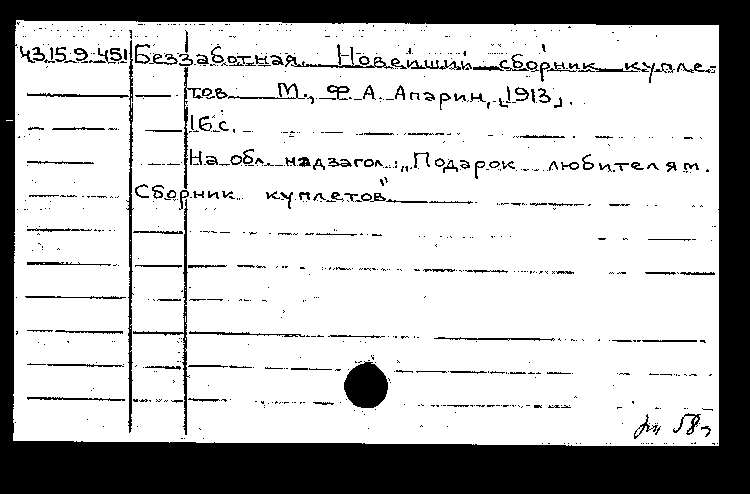 43.15.9.451 Беззаботная. Новейший сборник купле-
тов. М., Ф.А. Апарин, [1913].
16 с.
На обл. надзагол.: „Подарок любителям.
Сборник куплетов"
58